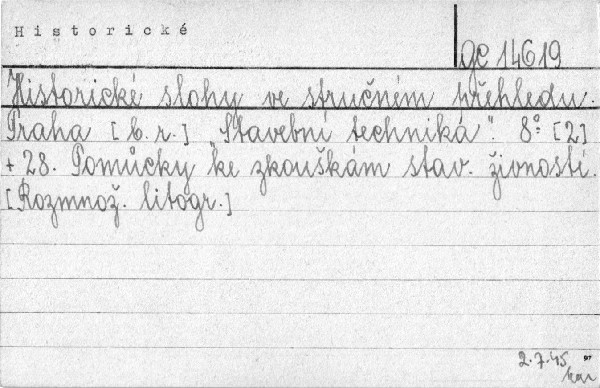 Historické
gC 14619
Historické slohy ve stručném přehledu.
Praha [b. r.] "Stavební technika". 8° [2]
+ 28. Pomůcky ke zkouškám stav. živností.
[Rozmnož. litogr.]
2.7.45